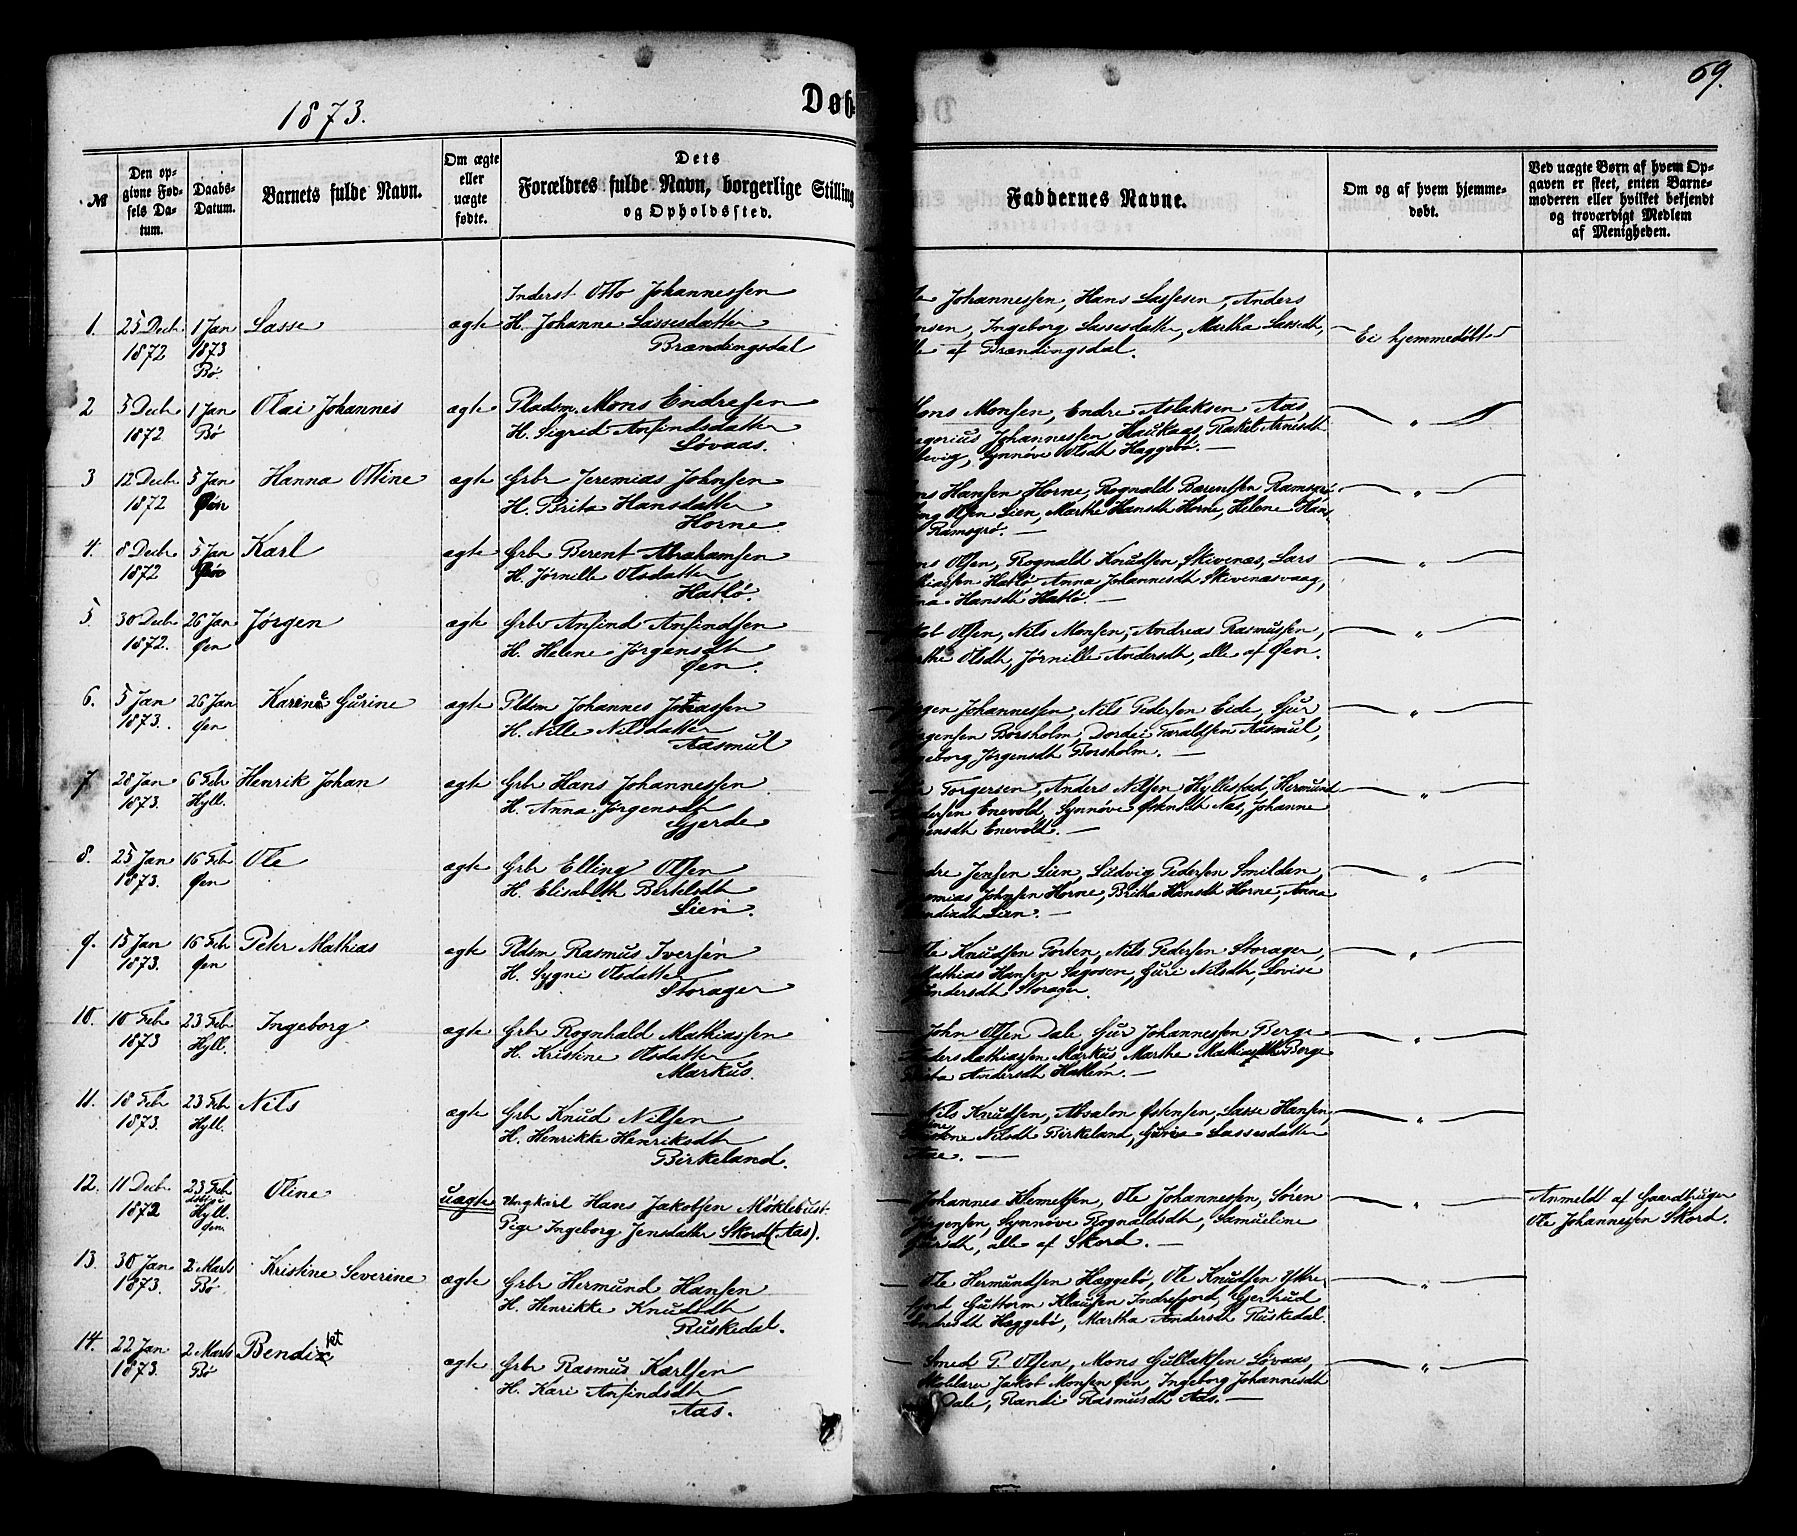 1873.
Døb
69.
№
Den op-
givne Fød-
sels Da-
tum.
Daabs-
Datum.
Barnets fulde Navn.
Om ægte
eller
uægte
fødte.
Dets
Forældres fulde Navn, borgerlige Stilling
og Opholdssted.
Faddernes Navne.
Om og af hvem hjemme-
døbt.
Ved uægte Børn af hvem Op-
gaven er skeet, enten Barne-
moderen eller hvilket bekjendt
og troværdigt Medlem
af Menigheden.
1. 25 Decb. 1872
1 Jan 1873 Bø.
Lasse
ægte
Inderst Otto Johannessen
H. Johanne Lassesdatter
Brændingsdal
Johannessen, Hans Lassesen, Anders
Ingeborg Lassesdatter, Martha Lassedt,
af Brændingsdal.
Ei hjemmedøbt
2 5 Decb. 1872
1 Jan Bø
Olai Johannes
ægte
Pladsm. Mons Endresen
H. Sigrid Anfindsdatter
Løvaas.
Mons Monsen, Endre Aslaksen Aas
Johannessen, Haukaas Rakel
Synnøve Olsdt Haggebø. —
"
3 12 Decb. 1872
5 Jan Øen
Hanna Ottine
ægte
Grbr Jeremias Johnsen
H. Brita Hansdatter
Horne
Hansen Horne, Rognald Bærentsen Ramsgrø
Olsen Lien, Marthe Hansdt Horne, Helene Hans
Ramsgrø. —
"
4. 8 Decb. 1872
5 Jan Øen
Karl
ægte
Grbr Berent Abrahamsen
H. Jørnille Olsdatter
Hatlø.
Olsen, Rognald Knudsen Skivenæs, Lars
Hatlø Anna Johannesdt Skivenæsvaag,
Hansdt Hatlø. —
"
5. 30 Decb. 1872.
26 Jan Øen
Jørgen
ægte
Grbr Anfind Anfindsen
H. Helene Jørgensdt
Øen.
Olsen, Nils Monsen, Andreas Rasmussen,
Marthe Olsdt, Jørnille Andersdt, alle af Øen.
"
6. 5 Jan 1873.
26 Jan Øen
Karine Gurine
ægte
Pldsm Johannes
H. Nille Nilsdatter
Aasmul
Johannessen, Nils Pedersen Eide, Gjur
Jørgensen Borsholm, Dordei Taraldsen Aasmul,
Ingeborg Jørgensdt Borsholm. —
"
7 28 Jan 1873.
6 Feb Hyll.
Henrik Johan
ægte
Grbr Hans Johannessen
H. Anna Jørgensdt
Gjerde
Torgersen, Anders Nilsen Hyllestad, Hermund
Pedersen Enevold, Synnøve Østensdt Næs, Johanne
Enevold. —
"
8. 25 Jan 1873.
16 Feb Øen
Ole
ægte
Grbr Elling Olsen
H. Elisabeth Berteldt
Lien.
Jensen Lien, Ludvig Pedersen Smilden,
Jeremias Johnsen Horne, Britha Hansdt Horne, Anna
Lien. —
"
9. 15 Jan 1873.
16 Feb Øen
Peter Mathias
ægte
Pldsm Rasmus Iversen
H. Sygni Olsdatter
Storager
Ole Knudsen Porten, Nils Pedersen Storager,
Mathias Hansen Sagosen, Guri Nilsdt, Lovise
Gundersdt Storager.
"
10. 10 Feb 1873
23 Feb Hyll.
Ingeborg
ægte
Grbr Rognhald Mathiassen
H. Kristine Olsdatter
Markus.
— John Olsen Dale Gjur Johannessen Berge
Anders Mathiassen Markus Marthe Mathiasdt Berge
Andersdt Hatlem. —
"
11. 18 Feb 1873.
23 Feb Hyll.
Nils
ægte
Grbr Knud Nilsen
H. Henrikke Henriksdt
Birkeland.
— Nils Knudsen, Absalon Østensen, Lasse Hansen,
Nilsdt Birkeland, Guri Lassesdatter
Aae. —
"
12. 11 Decb. 1872
23 Feb Hyll.
Oline
uægte
Ungkarl Hans Jakobsen Møklebust
Pige Ingeborg Jensdatter Skord (Aas).
— Johannes Klemetsen, Ole Johannessen, Søren
Jørgensen, Synnøve Rognaldsdt, Samueline
Gjurdt, alle af Skord. —
"
Anmeldt af Gaardbruger
Ole Johannessen Skord.
13. 30 Jan 1873.
2 Marts Bø
Kristine Severine
ægte
Grbr Hermund Hansen
H. Henrikke Knudsdt
Ruskedal.
— Ole Hermundsen Haggebø, Ole Knudsen Ytre
fjord Guttorm Klausen Indrefjord, Gjertrud
Andersdt Haggebø, Martha Andersdt Ruskedal.
"
14. 22 Jan 1873.
2 Marts Bø
Bendix
ægte
Grbr Rasmus Karlsen
H. Kari Anfindsdt
Aas.
— Smed P. Olsen, Mons Gullaksen Løvaas,
Jakob Monsen Øen, Ingeborg Johannisdt
Dale, Randi Rasmusdt Aas. —
"